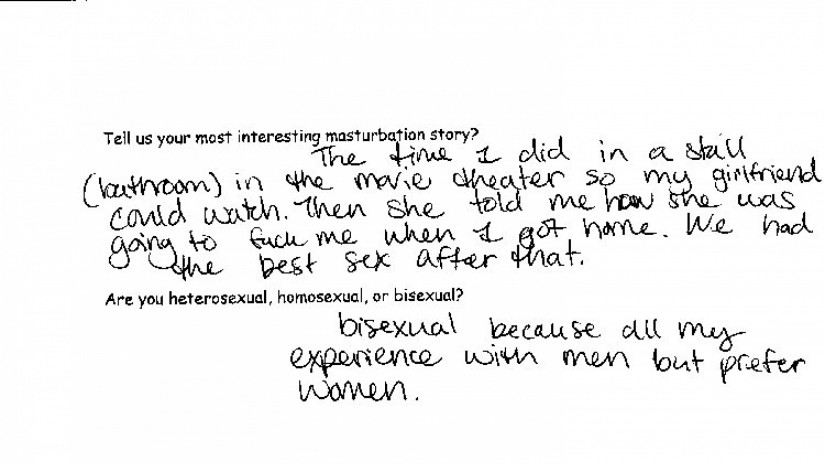 Tell us your most interesting masturbation story?
The time I did in a stall
(bathroom) in the movie theater so my girlfriend
could watch. Then she told me how she was
going to fuck me when I got home. We had
the best sex after that.
Are you heterosexual, homosexual, or bisexual?
bisexual because all my
experience with men but prefer
women.